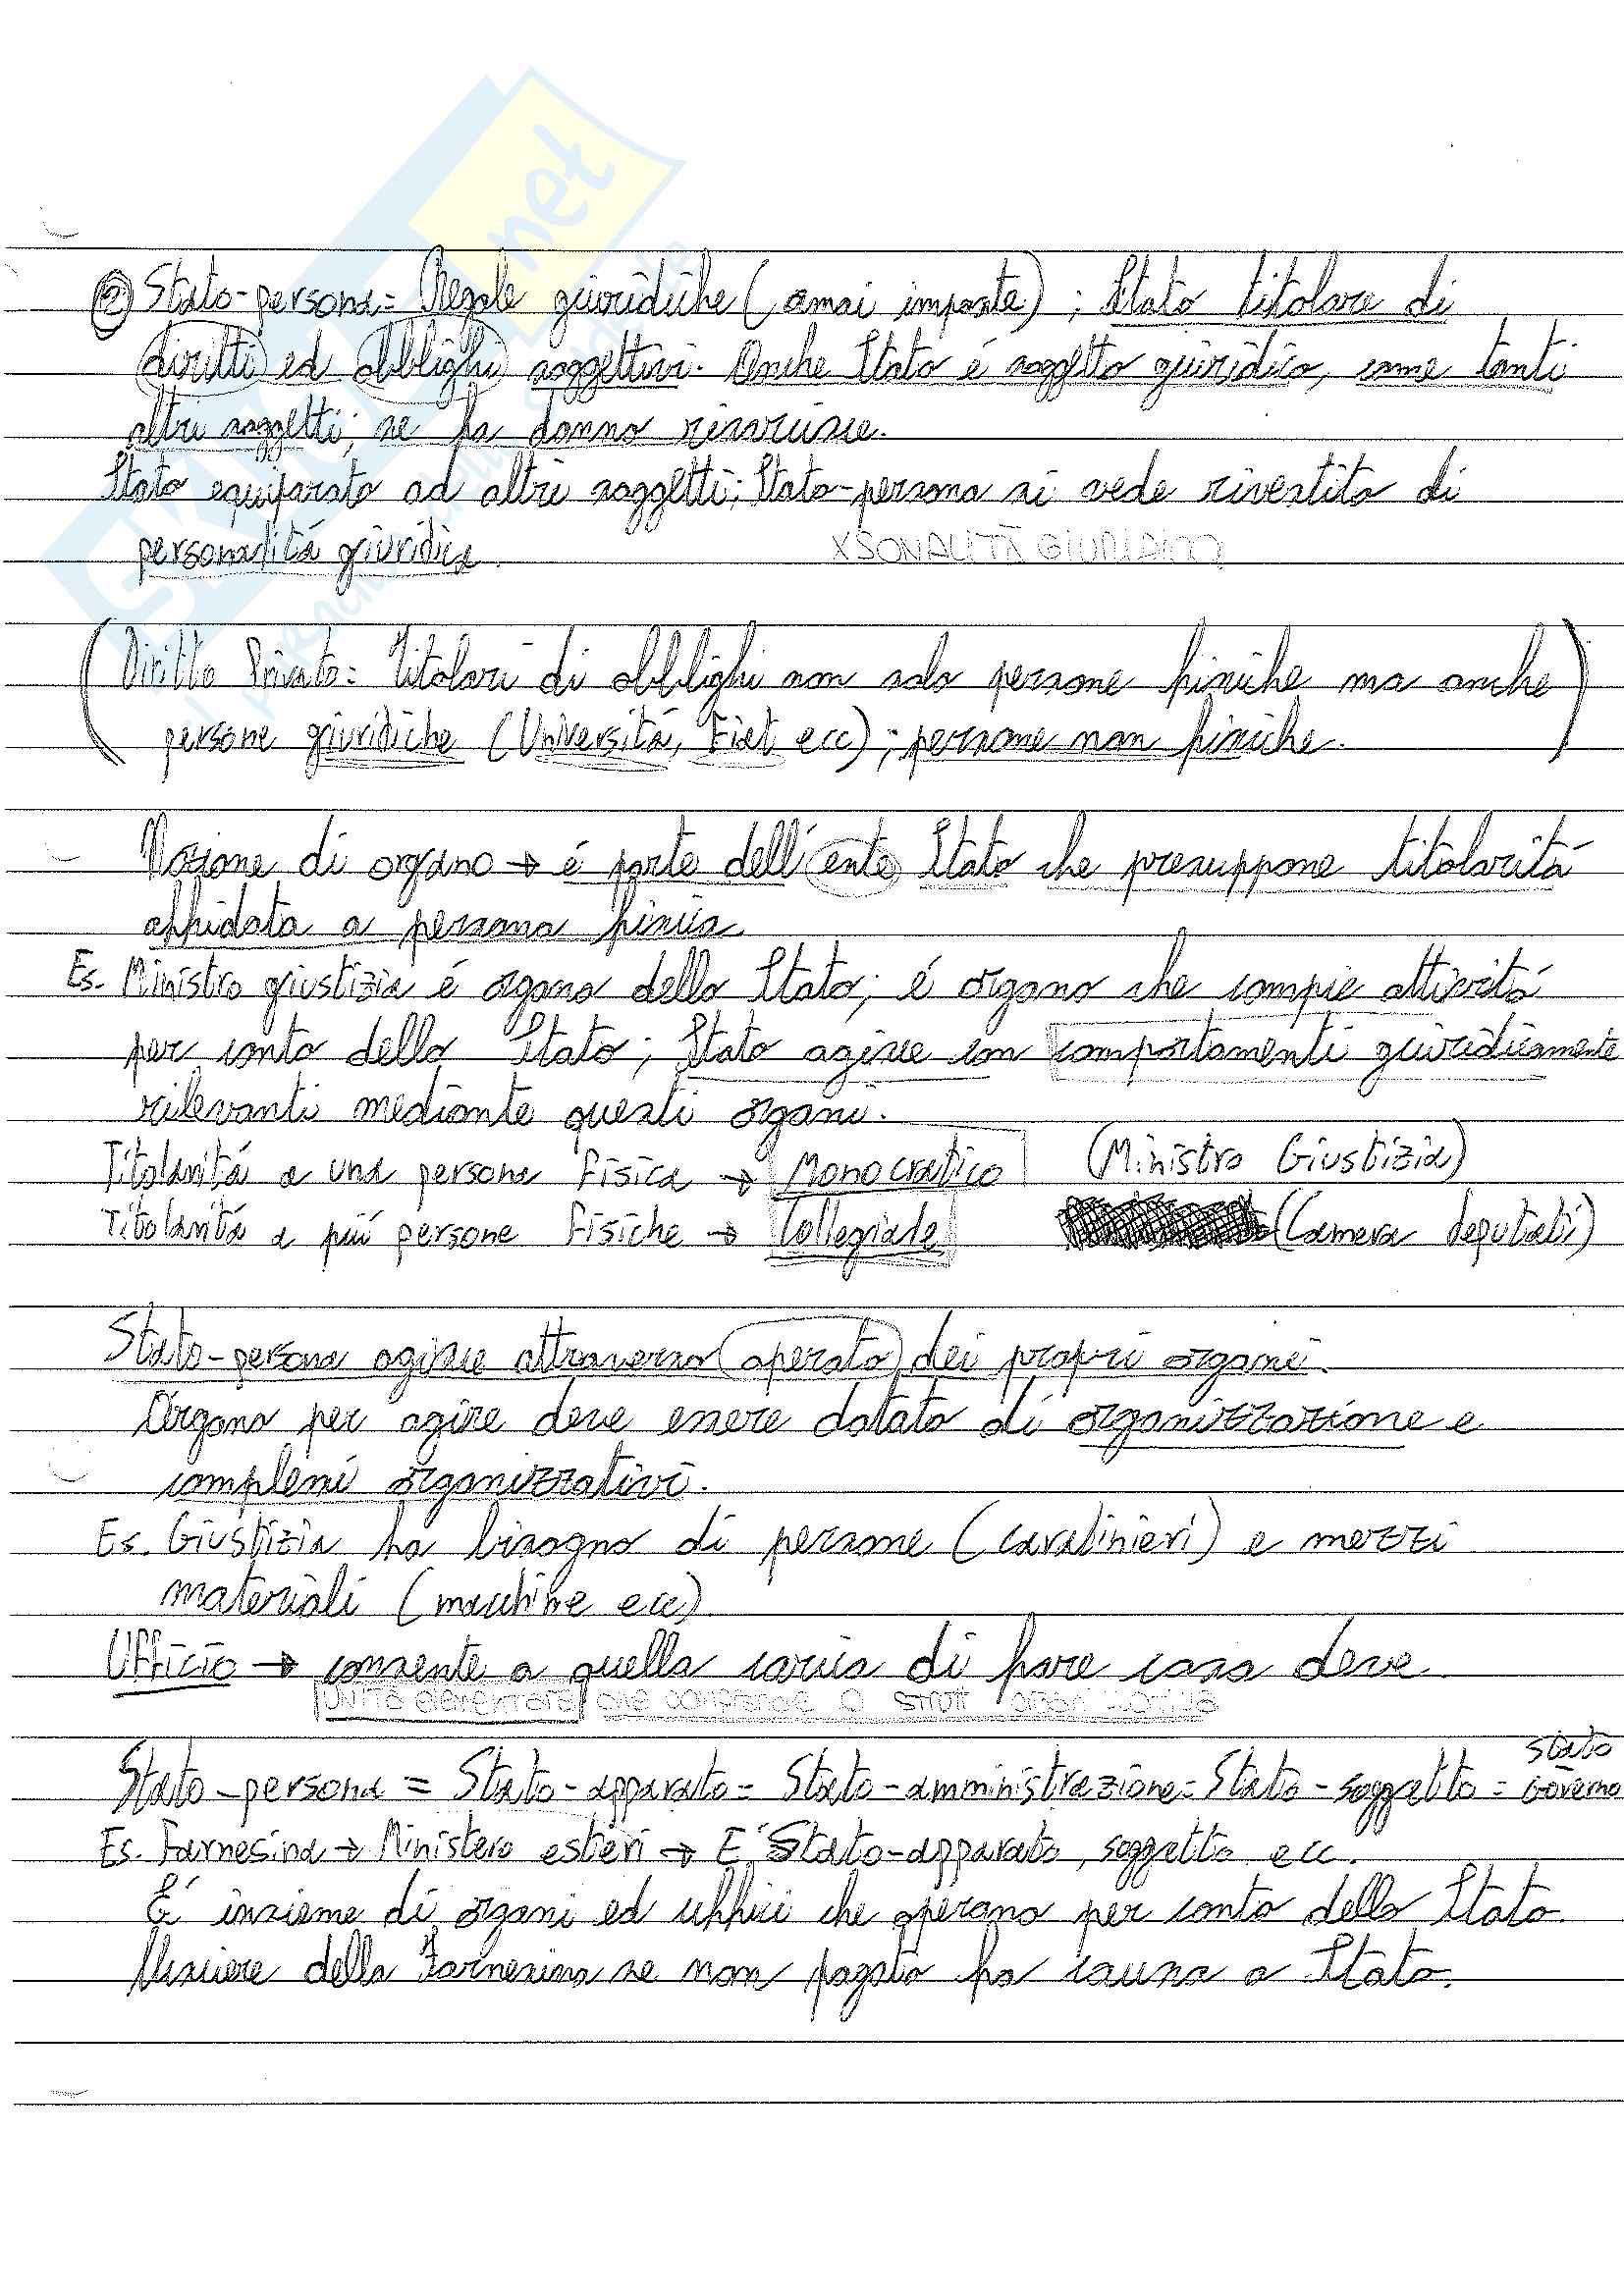 ② Stato-persona = Regole giuridiche ( imposte) ; Stato titolare di
diritti ed obblighi soggettivi. Anche Stato é soggetto giuridico, come tanti
altri soggetti; se fa danno risarcisce.
Stato equiparato ad altri soggetti; Stato-persona si vede rivestito di
personalitá giuridica.
XSONALITÀ GIURIDICA
(Diritto Privato = Titolari di obblighi non solo persone fisiche ma anche
persone giuridiche (Universitá, Fiat ecc) ; persone non fisiche.)
Nozione di organo → é parte dell'ente Stato che presuppone titolaritá
affidata a persona fisica.
Es. Ministro giustizia é organo dello Stato; é organo che compie attivitá
per conto dello Stato; Stato agisce con comportamenti giuridicamente
rilevanti mediante questi organi.
Titolaritá a una persona fisica → Monocratico (Ministro Giustizia)
Titolaritá a piú persone fisiche → Collegiale (Camera deputati)
Stato-persona agisce attraverso operato dei propri organi.
Organo per agire deve essere dotato di organizzazione e
complessi organizzativi.
Es. Giustizia ha bisogno di persone (carabinieri) e mezzi
materiali (macchine ecc).
Ufficio → consente a quella carica di fare cosa deve
UNITÀ ELEMENTARE CHE COMPRENDE
Stato-persona = Stato-apparato = Stato-amministrazione = Stato-soggetto = Stato-Governo
Es. Farnesina → Ministero esteri → E' Stato-apparato, soggetto ecc.
É insieme di organi ed uffici che operano per conto dello Stato.
Usciere della Farnesina se non pagato fa causa a Stato.
net